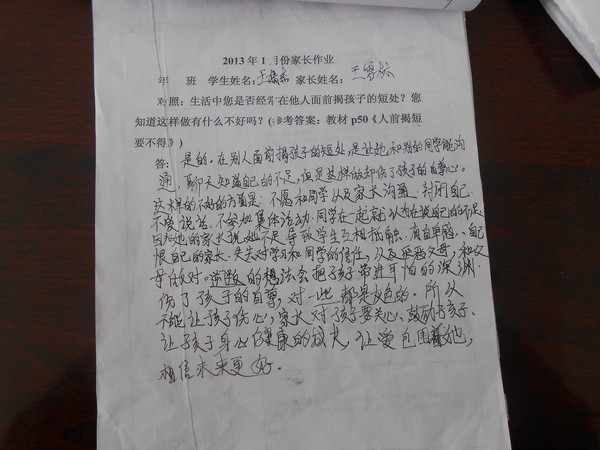 2013年1月份家长作业
年 班 学生姓名: 王 家长姓名: 王
对照：生活中您是否经常在他人面前揭孩子的短处？您
知道这样做有什么不好吗？(参考答案：教材 p50《人前揭短
要不得》)
答： 是的。在别人面前揭孩子的短处,是让她和别的同学能沟
通,聊天知道自己的不足,但是这样做却伤了孩子的自尊心。
这样的不好的方面是：不愿和同学以及家长沟通.封闭自己.
不爱说话.不参加集体活动.同学在一起就以为在说自己的不足
因为她的家长说她不足导致学生互相抵触.有自卑感.自己
恨自己的家长.失去对学习和同学的信任,以及 父母,和父
母 对.的想法会把孩子带进可怕的深渊.
伤了孩子的自尊,对一些都是灰色的.所以
不能让孩子伤心,家长对孩子要关心、鼓励孩子.
让孩子身心健康的成长,让爱包围着他,
相信未来更好.